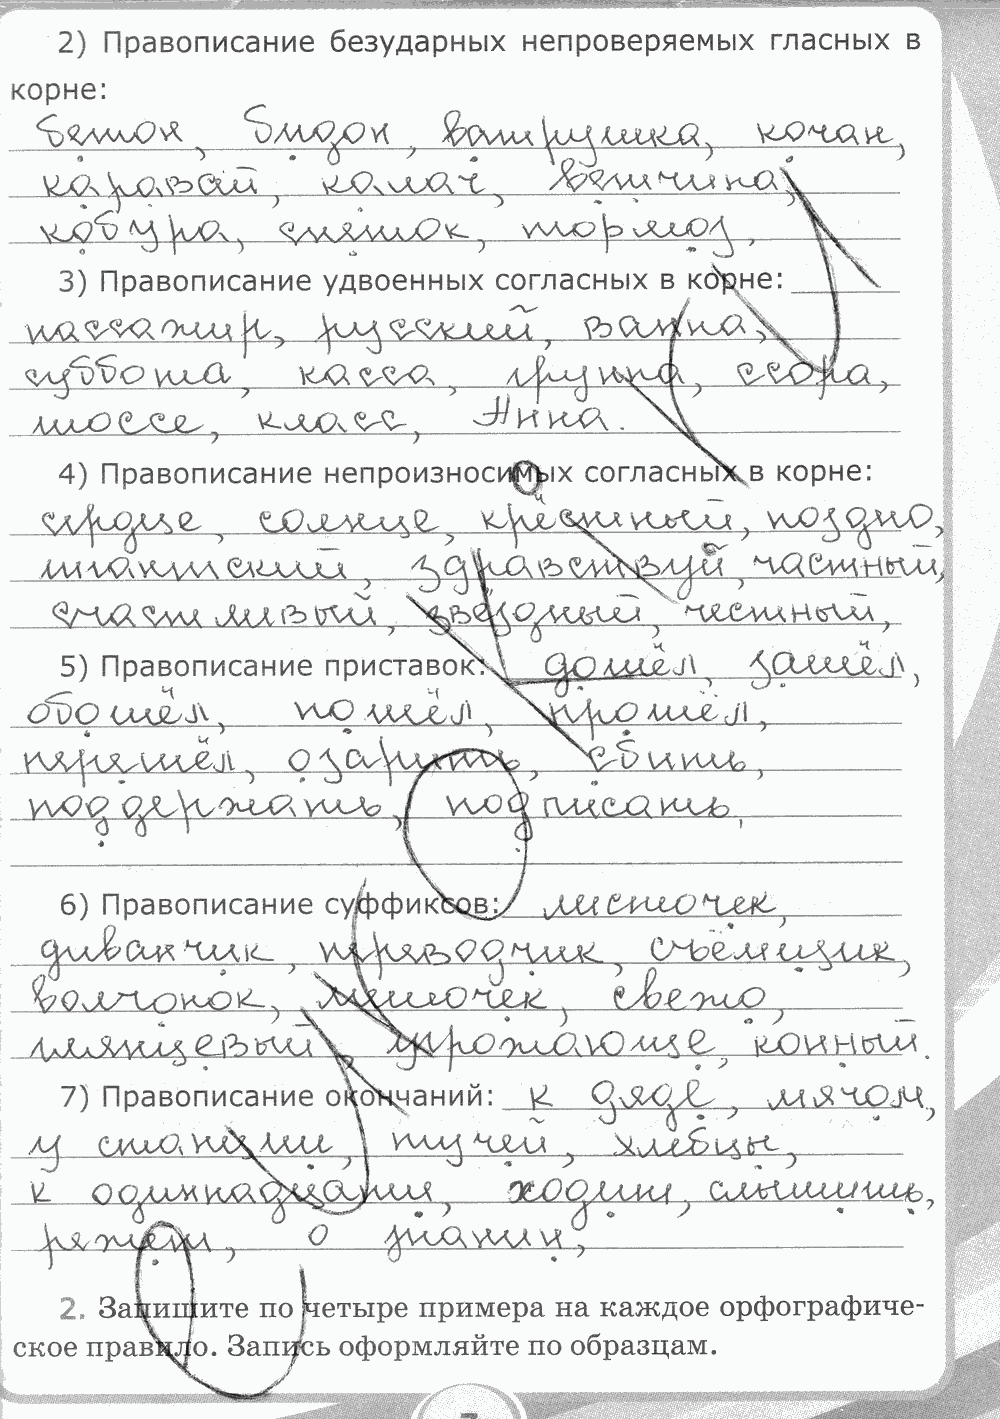 2) Правописание безударных непроверяемых гласных в
корне:
бетон, бидон, ватрушка, кочан,
каравай, калач, ветчина,
кобура, снеток, тормоз,
3) Правописание удвоенных согласных в корне:
пассажир, русский, ванна,
суббота, касса, группа, ссора,
шоссе, класс, Анна.
4) Правописание непроизносимых согласных в корне:
сердце, солнце, крёстный, поздно,
гигантский, здравствуй, частный,
счастливый, звёздный, честный,
5) Правописание приставок: дошёл, зашёл,
обошёл, пошёл, прошёл,
перешёл, озарить, сбить,
поддержать, подписать,
6) Правописание суффиксов: листочек,
диванчик, переводчик, съёмщик,
волчонок, мешочек, свежо,
глянцевый, угрожающе, конный.
7) Правописание окончаний: к дяде, мячом,
у станции, тучей, хлебцы,
к одиннадцати, ходит, слышишь,
режет, о знании,
2. Запишите по четыре примера на каждое орфографиче-
ское правило. Запись оформляйте по образцам.
7